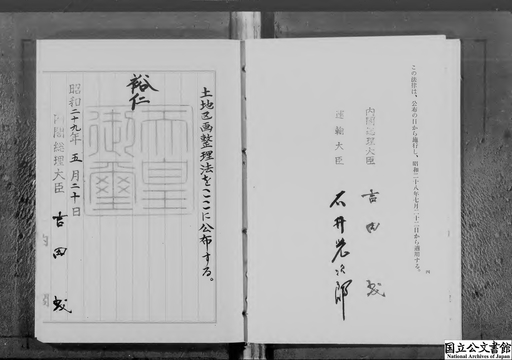 この法律は、公布の日から施行し、昭和二十八年七月二十二日から適用する。
内閣総理大臣 吉田茂
運輸大臣 石井光次郎
土地区画整理法をここに公布する。
裕仁
天皇御璽
昭和二十九年五月二十日
内閣総理大臣 吉田茂
国立公文書館
National Archives of Japan